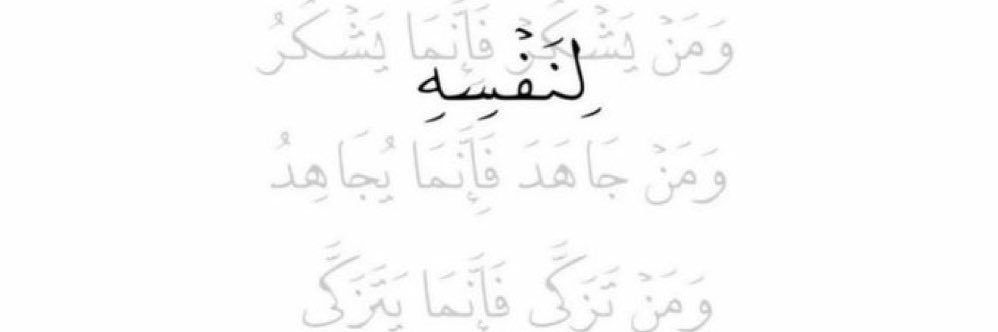 وَمَنْ يَشْكُرْ فَإِنَّمَا يَشْكُرُ
لِنَفْسِهِ
وَمَنْ جَاهَدَ فَإِنَّمَا يُجَاهِدُ
وَمَنْ تَزَكَّى فَإِنَّمَا يَتَزَكَّى